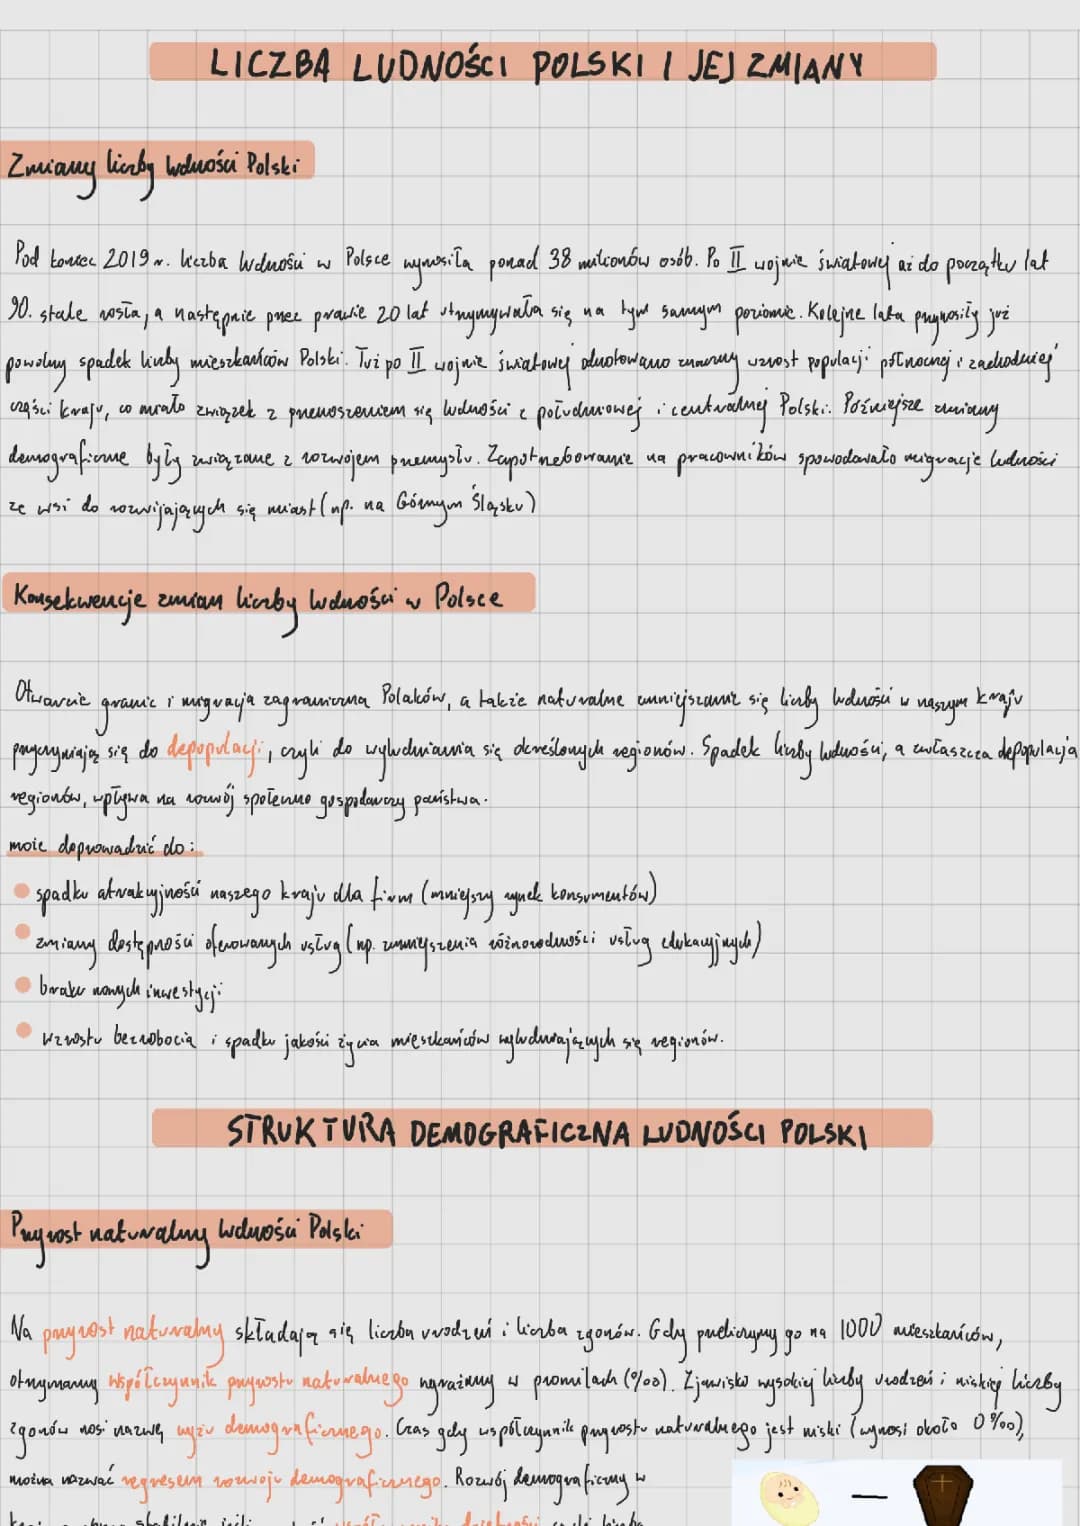 LICZBA LUDNOŚCI POLSKI I JEJ ZMIANY
Zmiany liczby ludności Polski
Pod koniec 2019 r. liczba ludności w Polsce wynosiła ponad 38 milionów osób. Po II wojnie światowej aż do początku lat
90. stale rosła, a następnie przez prawie 20 lat utrzymywała się na tym samym poziomie. Kolejne lata przynosiły już
powolny spadek liczby mieszkańców Polski. Tuż po II wojnie światowej odnotowano znaczny wzrost populacji północnej i zachodniej
części kraju, co miało związek z przenoszeniem się ludności z południowej i centralnej Polski. Późniejsze zmiany
demograficzne były związane z rozwojem przemysłu. Zapotrzebowanie na pracowników spowodowało migracje ludności
ze wsi do rozwijających się miast (np. na Górnym Śląsku)
Konsekwencje zmian liczby ludności w Polsce
Otwarcie granic i migracja zagraniczna Polaków, a także naturalne zmniejszanie się liczby ludności w naszym kraju
przyczyniają się do depopulacji, czyli do wyludniania się określonych regionów. Spadek liczby ludności, a zwłaszcza depopulacja
regionów, wpływa na rozwój społeczno gospodarczy państwa.
może doprowadzić do:
spadku atrakcyjności naszego kraju dla firm (mniejszy rynek konsumentów)
zmiany dostępności oferowanych usług (np. zmniejszenia różnorodności usług edukacyjnych)
braku nowych inwestycji
wzrostu bezrobocia i spadku jakości życia mieszkańców wyludniających się regionów.
STRUKTURA DEMOGRAFICZNA LUDNOŚCI POLSKI
Przyrost naturalny ludności Polski
Na przyrost naturalny składają się liczba urodzeń i liczba zgonów. Gdy przeliczymy go na 1000 mieszkańców,
otrzymamy współczynnik przyrostu naturalnego wyrażany w promilach (‰). Zjawisko wysokiej liczby urodzeń i niskiej liczby
zgonów nosi nazwę wyżu demograficznego. Czas gdy współczynnik przyrostu naturalnego jest niski (wynosi około 0‰),
można nazwać regresem rozwoju demograficznego. Rozwój demograficzny w